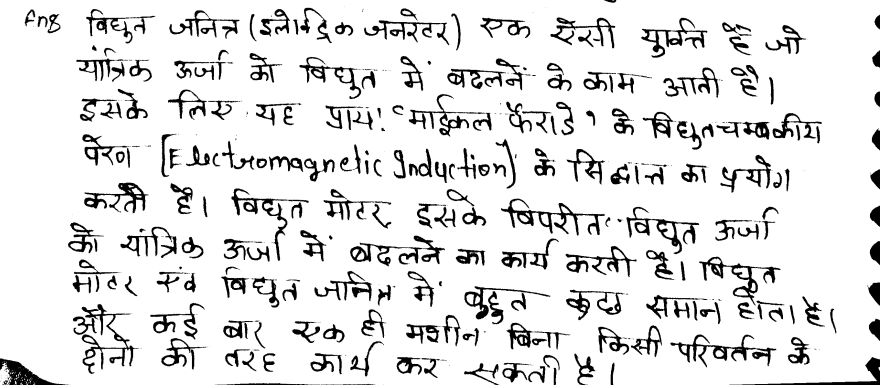 Ans विद्युत जनित्र (इलेक्ट्रिक जनरेटर) एक ऐसी युक्ति है जो
यांत्रिक ऊर्जा को विद्युत में बदलनें के काम आती है।
इसके लिए यह प्राय! 'माईकल फैराडे' के विद्युतचम्बकीय
पेरण [Electromagnetic Induction) के सिद्धान्त का प्रयोग
करतीे है। विद्युत मोटर, इसके विपरीत विद्युत ऊर्जा
को यांत्रिक ऊर्जा में बदलने का कार्य करती है। विद्युत
मोटर एंव विद्युत जनित्र में बहुत कुछ समान होता है।
और कई बार एक ही मशीन बिना किसी परिवर्तन के
दोनो की तरह कार्य कर सकती है।